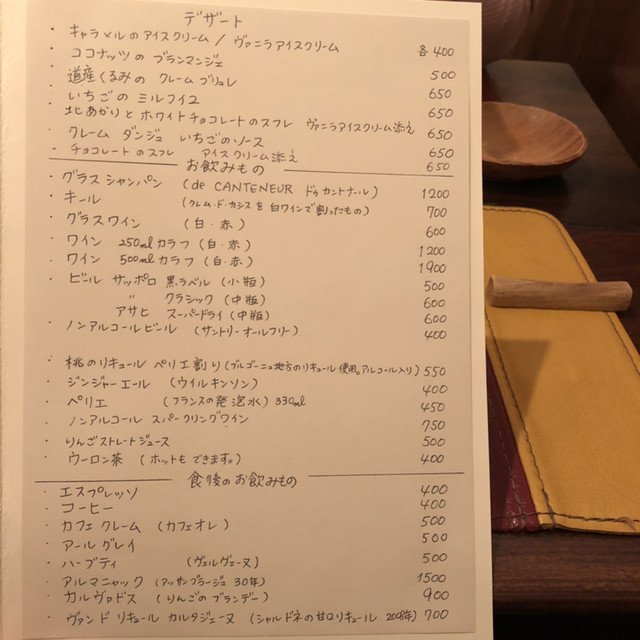 デザート
・キャラメルのアイスクリーム / ヴァニラアイスクリーム 各400
・ココナッツの ブランマンジェ 500
・道産くるみの クレームブリュレ 650
・いちごの ミルフイユ 650
・北あかりと ホワイトチョコレートのスフレ ヴァニラアイスクリーム添え 650
・クレーム ダンジュ いちごのソース 650
・チョコレートのスフレ アイスクリーム添え 650
お飲みもの
・グラスシャンパン (de CANTENEUR ドゥ カントナール) 1200
・キール (クレム・ド・カシスを 白ワインで割ったもの) 700
・グラスワイン (白・赤) 600
・ワイン 250mlカラフ (白・赤) 1200
・ワイン 500mlカラフ (白・赤) 1900
・ビール サッポロ 黒ラベル (小瓶) 500
〃 クラシック (中瓶) 600
アサヒ スーパードライ (中瓶) 600
・ノンアルコールビール (サントリーオールフリー) 400
・桃のリキュール ペリエ割り (ブルゴーニュ地方のリキュール使用。アルコール入り) 550
・ジンジャーエール (ウイルキンソン) 400
・ペリエ (フランスの発泡水) 330ml 450
・ノンアルコール スパークリングワイン 750
・りんごストレートジュース 500
・ウーロン茶 (ホットも できます。) 400
食後のお飲みもの
・エスプレッソ 400
・コーヒー 400
・カフェ クレーム (カフェオレ) 500
・アール グレイ 500
・ハーブティ (ヴェルヴェーヌ) 500
・アルマニャック (アッサンブラージュ 30年) 1500
・カルヴァドス (りんごのブランデー) 900
・ヴァンド リキュール カルタジェーヌ (シャルドネの甘口リキュール 2008年) 700